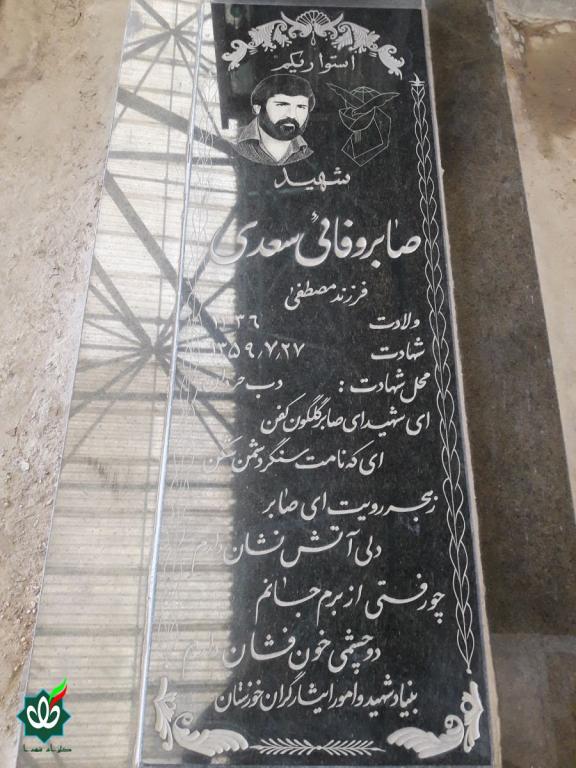 استوار یکم
شهید
صابر وفائی سعدی
فرزند مصطفیٰ
ولادت ۱۳۳۶
شهادت ۱۳۵۹٫۷٫۲۷
محل شهادت : دب حردان
ای شهید ای صابر گلگون کفن
ای که نامت سنگر دشمن شکن
زهجر رویت ای صابر
دلی آتش نشان دارم
چو رفتی از برم جانم
دو چشمی خون فشان دارم
بنیاد شهید و امور ایثارگران خوزستان
گلزار شهدا